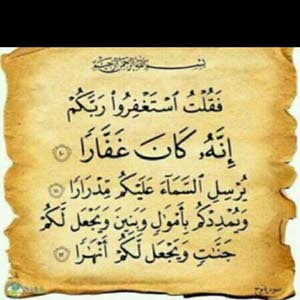 بِسْمِ ٱللَّهِ ٱلرَّحْمَٰنِ ٱلرَّحِيمِ
فَقُلْتُ ٱسْتَغْفِرُوا۟ رَبَّكُمْ
إِنَّهُۥ كَانَ غَفَّارًا ١٠
يُرْسِلِ ٱلسَّمَآءَ عَلَيْكُم مِّدْرَارًا ١١
وَيُمْدِدْكُم بِأَمْوَٰلٍ وَبَنِينَ وَيَجْعَل لَّكُمْ
جَنَّٰتٍ وَيَجْعَل لَّكُمْ أَنْهَٰرًا ١٢
سورة نوح